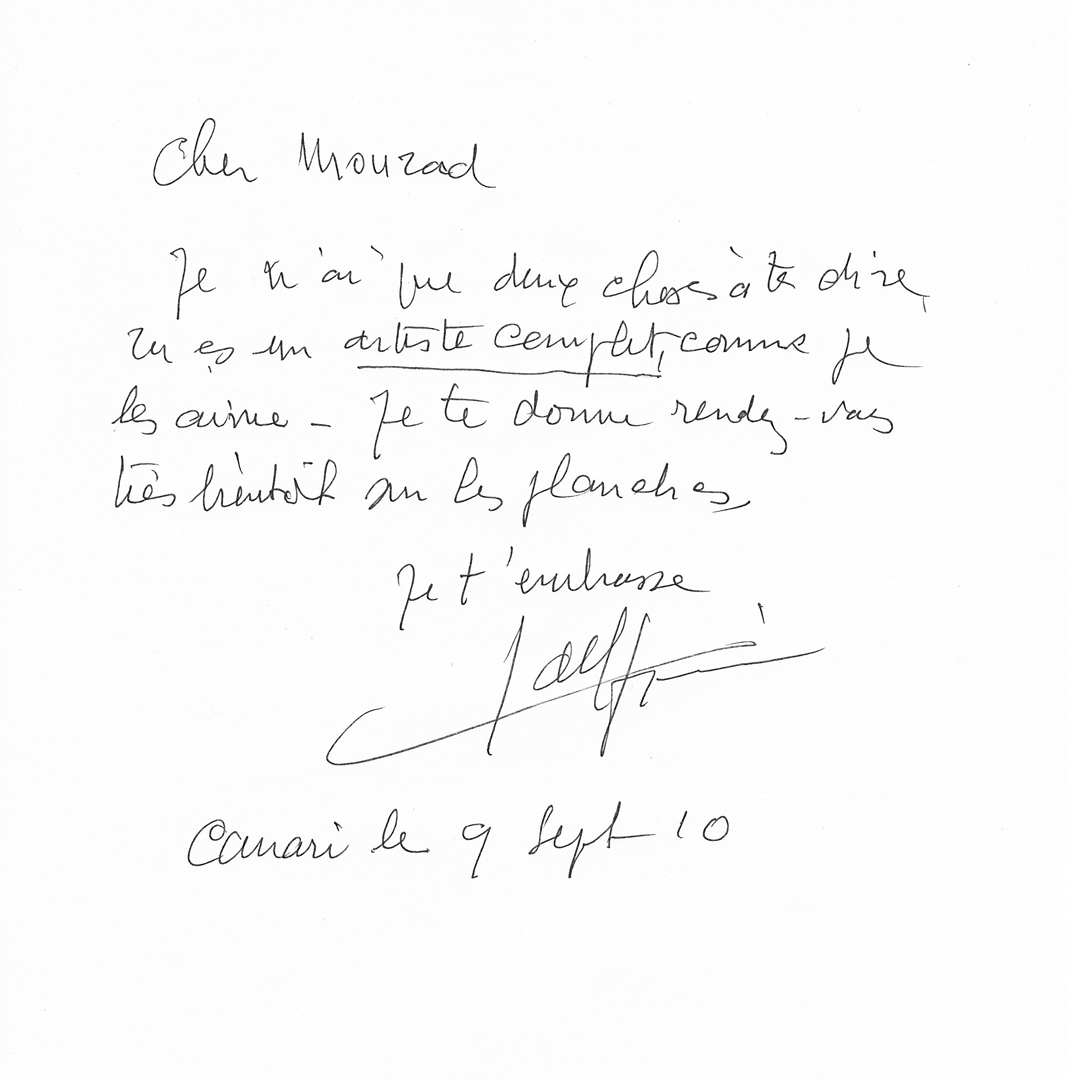 Cher Mourad
Je n'ai que deux choses à te dire,
tu es un artiste complet, comme je
les aime - Je te donne rendez-vous
très bientôt sur les planches,
Je t'embrasse
Canari le 9 Sept 10